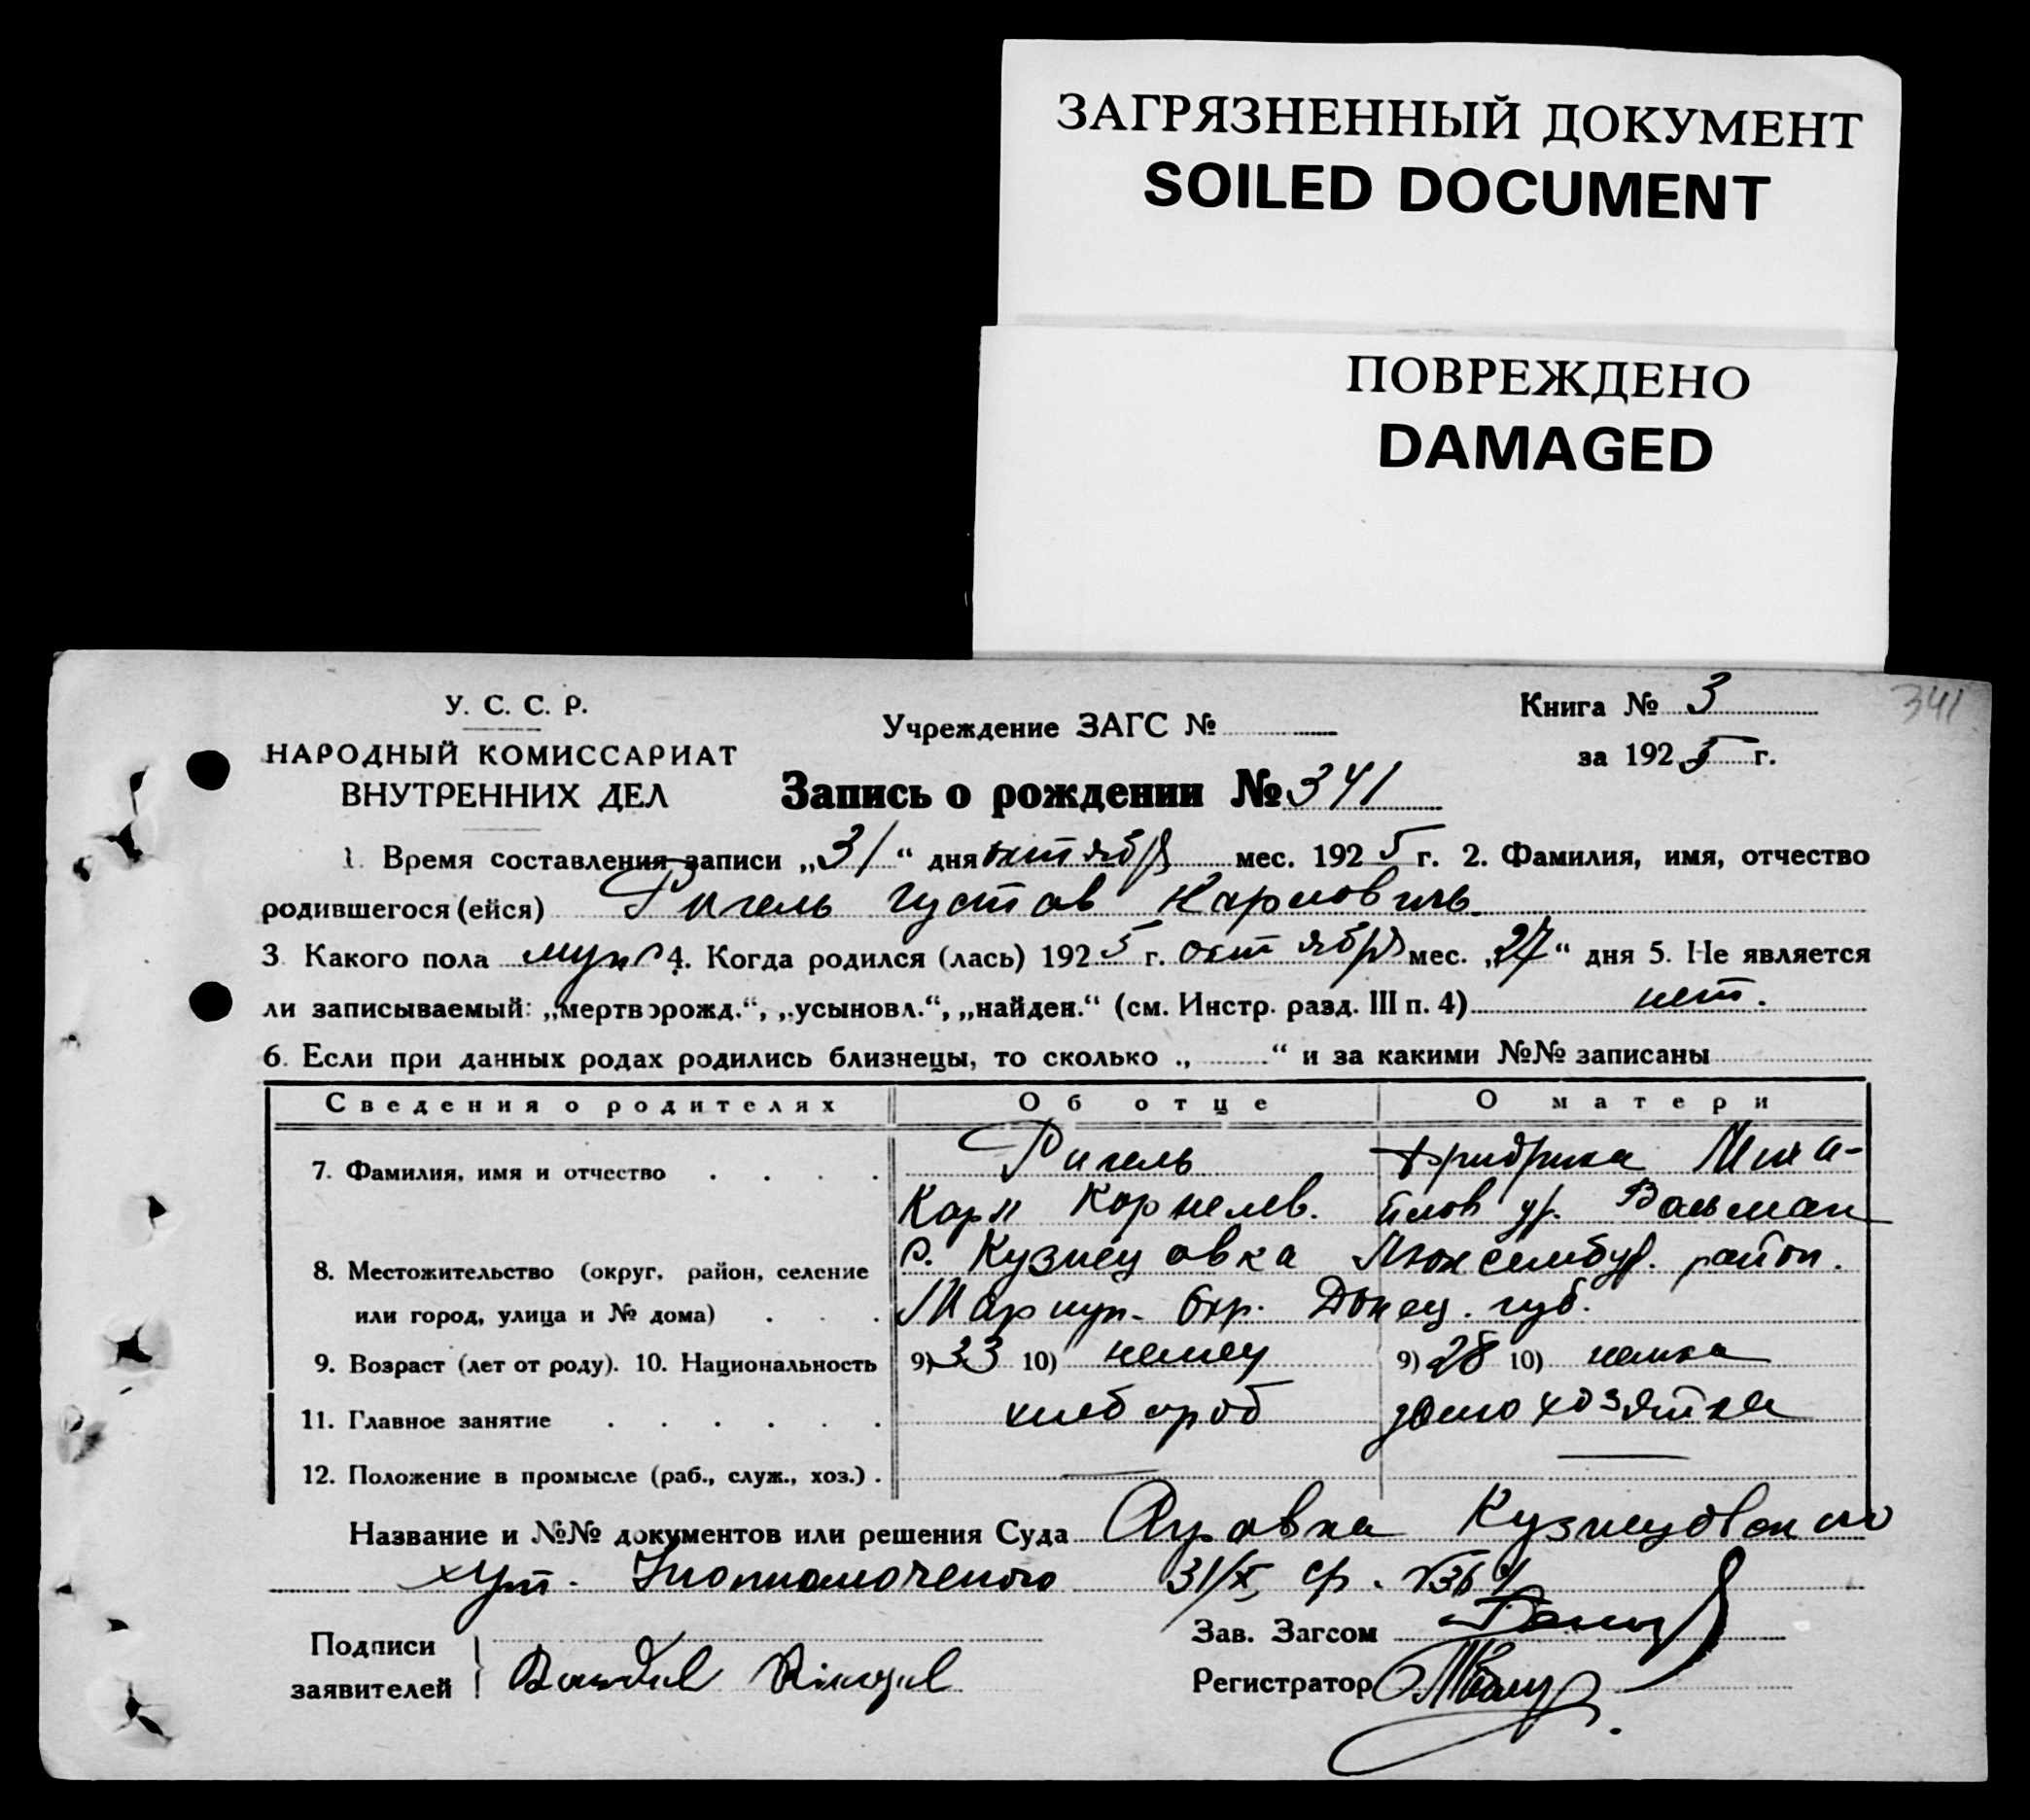 ЗАГРЯЗНЕННЫЙ ДОКУМЕНТ
SOILED DOCUMENT
ПОВРЕЖДЕНО
DAMAGED
341
У. С. С. Р.
НАРОДНЫЙ КОМИССАРИАТ
ВНУТРЕННИХ ДЕЛ
Учреждение ЗАГС №
Книга № 3
за 1925 г.
Запись о рождении № 341
1. Время составления записи „31“ дня октября мес. 1925 г. 2. Фамилия, имя, отчество
родившегося (ейся) Ригель Густав Карлович
3. Какого пола муж 4. Когда родился (лась) 1925 г. октября мес. „27“ дня 5. Не является
ли записываемый: „мертворожд.“, „усыновл.“, „найден.“ (см. Инстр. разд. III п. 4) нет.
6. Если при данных родах родились близнецы, то сколько „ “ и за какими №№ записаны
Сведения о родителях Об отце О матери
7. Фамилия, имя и отчество Ригель Фридрика
Карл Корнелев.
8. Местожительство (округ, район, селение с. Кузнецовка Люксембург. район.
или город, улица и № дома) Мариуп. Окр. Донец. губ.
9. Возраст (лет от роду). 10. Национальность 9) 33 10) немец 9) 28 10) немка
11. Главное занятие хлебороб домохозяйка
12. Положение в промысле (раб., служ., хоз.) .
Название и №№ документов или решения Суда Кузнецовского
хут. Уполномоченого 31/X
Подписи
заявителей
Зав. Загсом
Регистратор